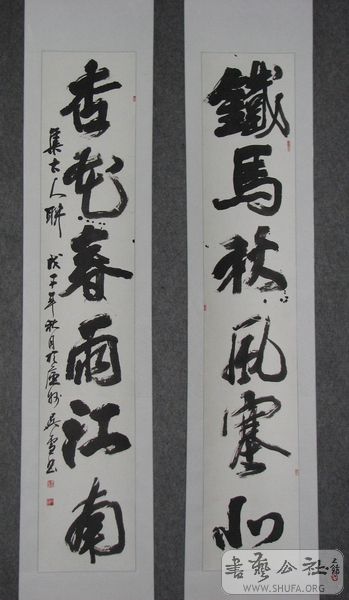 鐵馬秋風塞北
杏花春雨江南
集古人聯 戊子年秋月於廬州 吳雪書
書藝公社
WWW.SHUFA.ORG